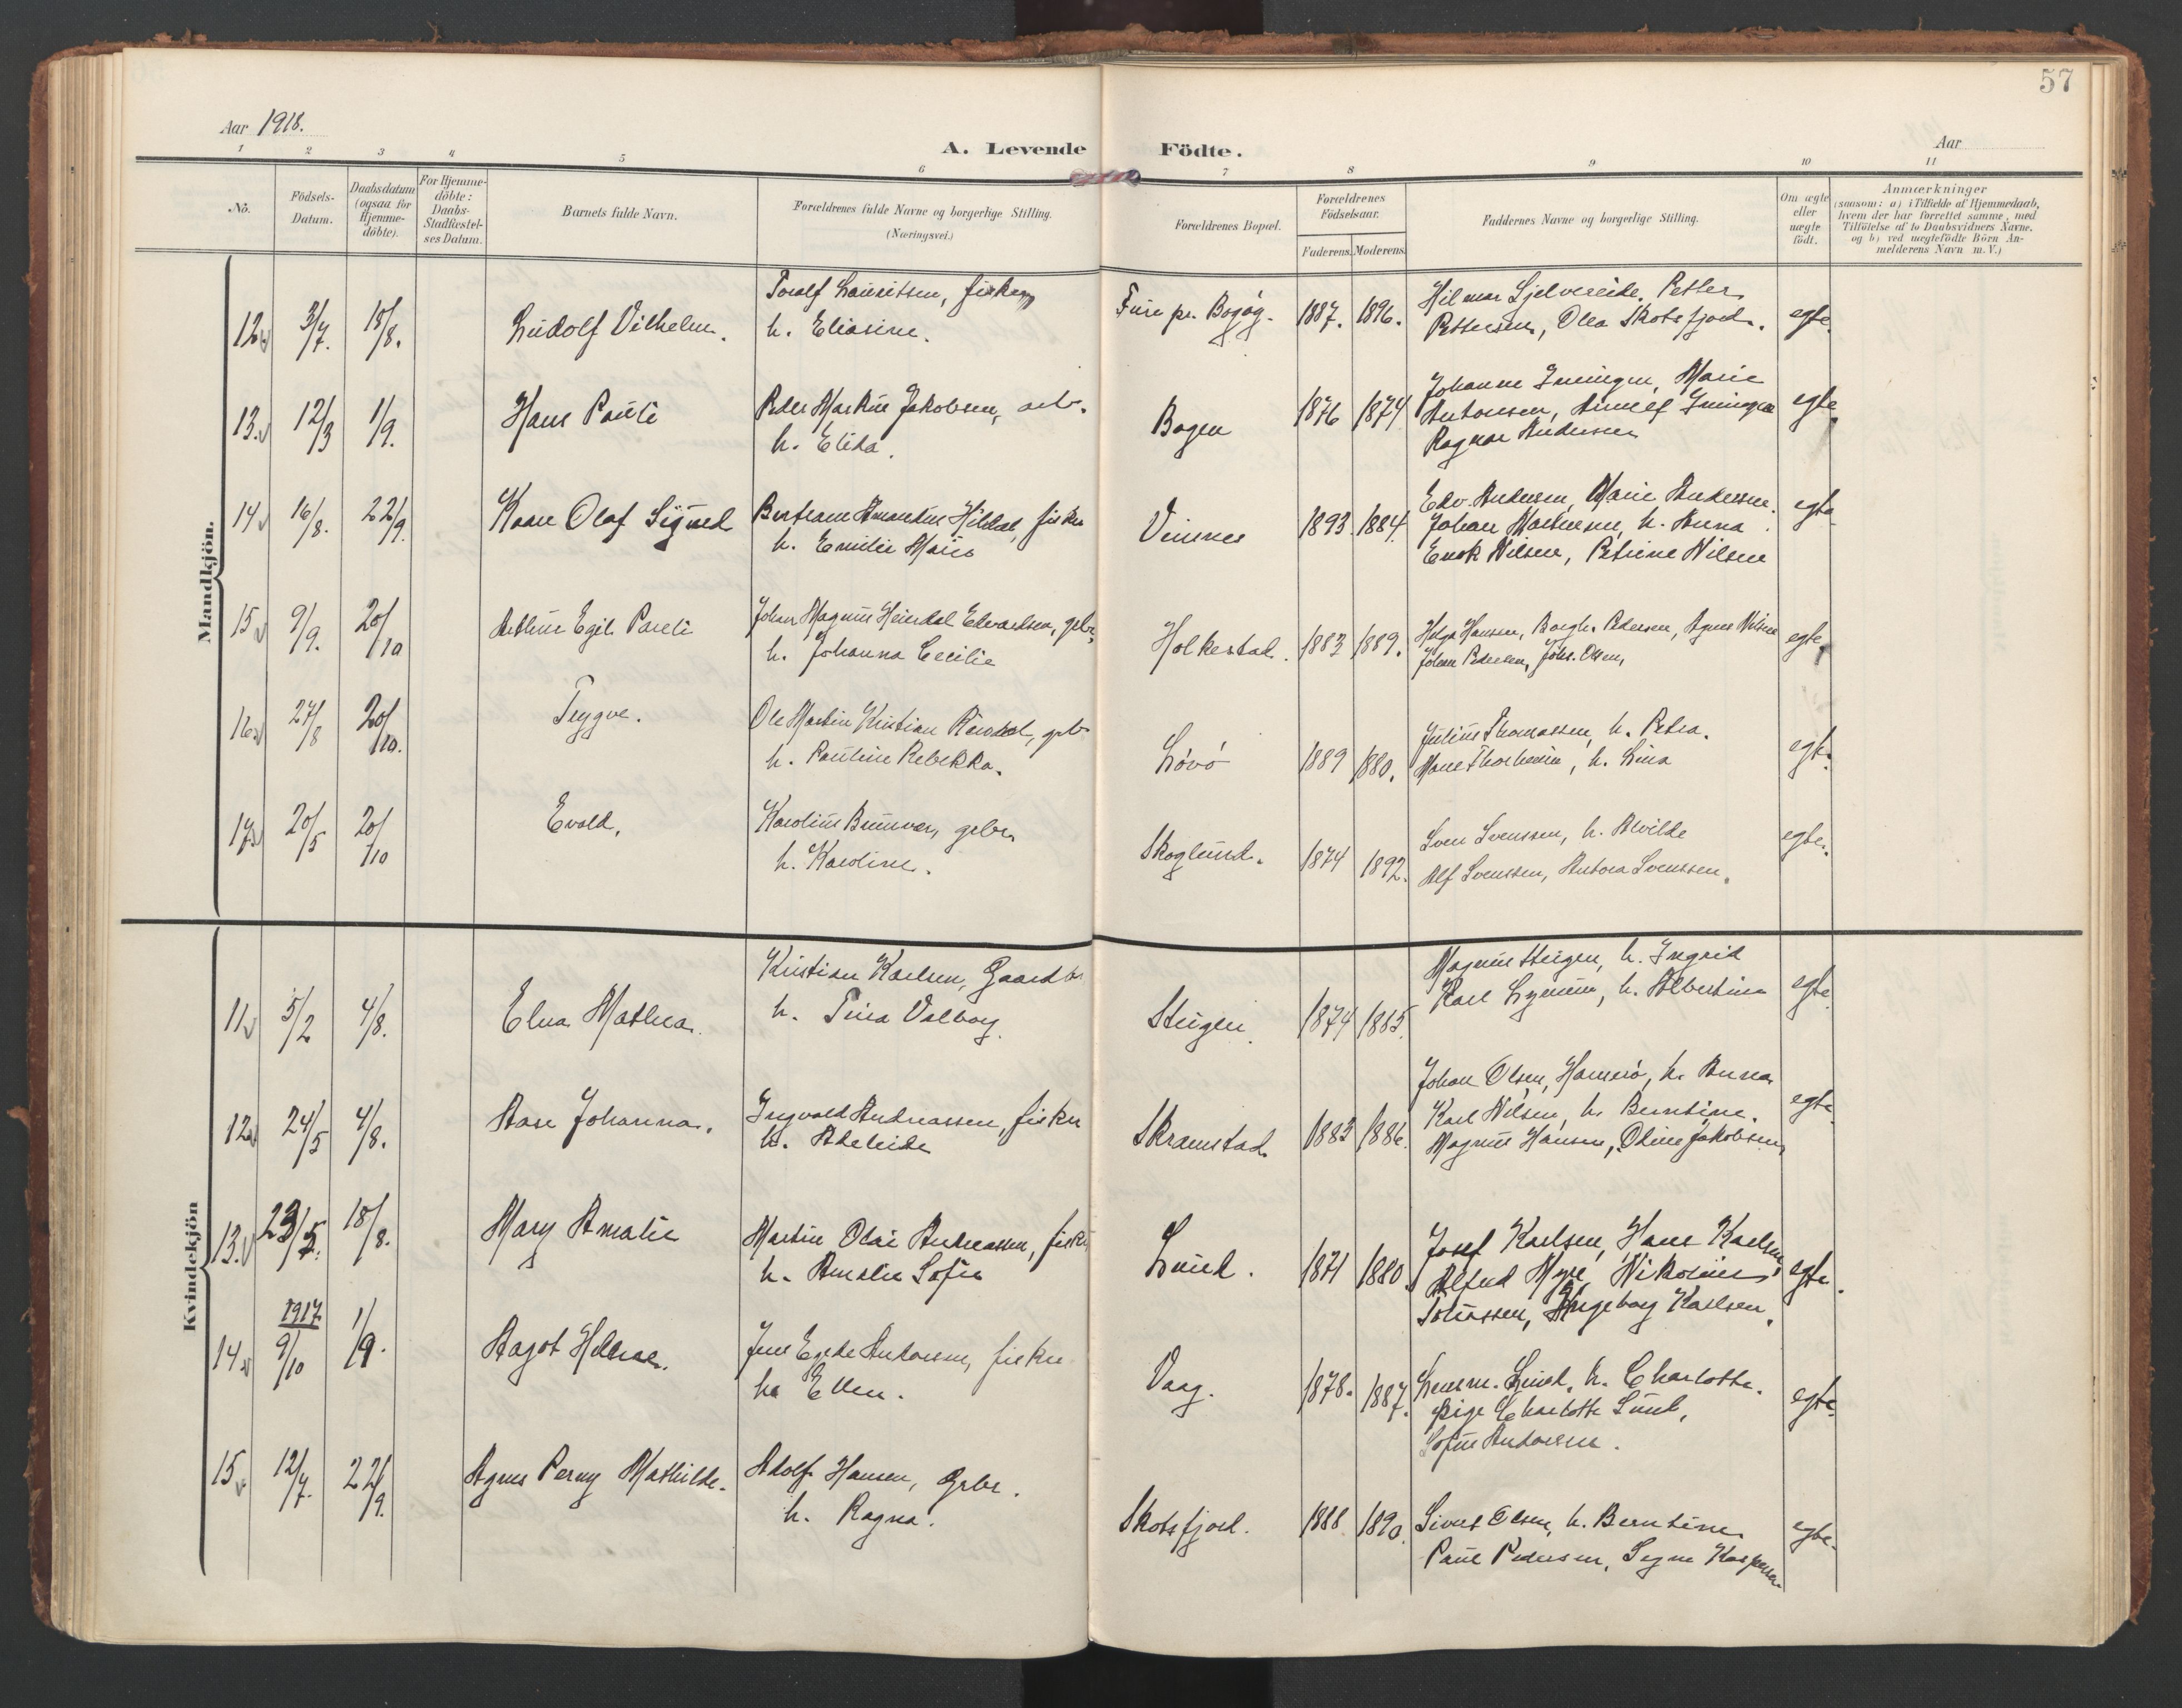 57
Aar 1918.
Aar
A. Levende Födte.
1 2 3 4 5 6 7 8 9 10 11
No.
Födsels-
Datum.
Daabsdatum
(ogsaa for
Hjemme-
döbte).
For Hjemme-
döbte:
Daabs-
Stadfæstel-
ses Datum.
Barnets fulde Navn.
Forældrenes fulde Navne og borgerlige Stilling.
(Næringsvei.)
Forældrenes Bopæl.
Forældrenes
Födselsaar.
Faderens. Moderens.
Faddernes Navne og borgerlige Stilling.
Om ægte
eller
uægte
födt.
Anmærkninger
(saasom: a) i Tilfælde af Hjemmedaab,
hvem der har forrettet samme, med
Tilföielse af to Daabsvidners Navne.
og b) ved uægtefödte Börn An-
melderens Navn m.V.)
Mandkjön.
12 3/7. 18/8. Ludolf Vilhelm.
Toralf Lauritsen, fisker
h. Eliasine.
Fure pr. Bogøy. 1887. 1896.
Hilmar Sjelvereide, Petter
Pettersen, Olea Skotsfjord.
egte.
13. 12/3 1/9. Hans Pauli
Peder Markus Jakobsen, arb.
h. Elida.
Bogen 1876 1874
Johanne Inningen, Marie
Antonsen, Inningen
Ragnar Andersen
egte
14 16/8. 22/9. Kaare Olaf Sigurd
Hildal, fisker
h. Emilie Marie
Vinnes 1893. 1884.
Edv. Andersen, Marie Andersen.
Johan Martinsen, h. Anna.
Enok Nilsen, Petrine Nilsen
egte
15 9/9. 20/10 Arthur Egil Pauli
Johan Magnus Heirdal Edvardsen, gbr.
h. Johanna Cecilie
Holkestad. 1883 1889.
Helga Hansen, Borgh. Pedersen, Agnes Nilsen
Johan Pedersen, Johs. Olsen,
egte,
16 27/8 20/10. Trygve.
Ole Martin Kristian, gbr
h. Pauline Rebekka.
Løvø 1889 1880.
Julius Thomassen, h. Petra.
h. Lina
egte.
17 20/5 20/10 Evald.
Karolius Brunvær, gbr.
h. Karoline.
Skoglund. 1874 1892.
Sven Svenssen, h. Alvilde
Alf Svenssen, Antora Svenssen.
egte.
Kvindekjön
11 5/2 4/8. Elna Mathea.
Kristian Karlsen, Gaardbr
h. Tina Valborg.
Steigen. 1874 1885.
Magnus Steigen, h. Ingrid
Karl, h. Albertine
egte
12 24/5 4/8. Aase Johanna.
Ingvald Andreassen, fisker
h. Adeleide
Skramstad 1883 1886.
Johan Olsen, Hamerø, h. Anna
Karl Nilsen, h. Berntine.
Magnus Hansen, Oline Jakobsen,
egte
13. 23/5. 18/8. Mary Amalie
Martin Olai Andreassen, fisker
h. Amalie Sofie
Lund. 1871 1880
Josef Karlsen, Hans Karlsen,
Alfred Myre, Nikoline
Tobiassen, Ingeborg Karlsen.
egte.
14 1917 9/10 1/9. Aagot Helene.
Jens Egede Andersen, fisker
h. Ellen.
Vaag. 1878. 1887.
Lensm. Lund, h. Charlotte.
pige Charlotte Lund,
Sofie Andersen.
egte.
15 12/7. 22/9. Agnes Perny Mathilde.
Adolf Hansen, Gbr.
h. Ragna.
Skotsfjord. 1888 1890.
Sivert Olsen, h. Berntine
Paul Pedersen, Signe Kaspersen
egte.